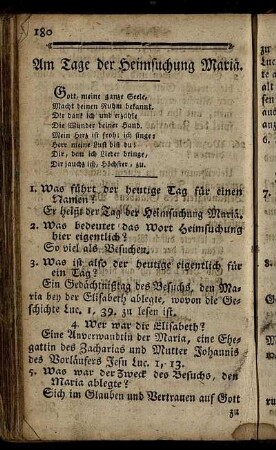 180
Am Tage der Heimsuchung Mariä.
Gott, meine ganze Seele,
Macht deinen Ruhm bekannt.
Dir dank ich und erzähle
Die Wunder deiner Hand.
Mein Herz ist froh: ich singe;
Herr meine Lust bist du!
Dir, dem ich Lieder bringe,
Dir jauchz ich, Höchster, zu.
1. Was führt der heutige Tag für einen
Namen?
Er heißt der Tag der Heimsuchung Mariä.
2. Was bedeutet das Wort Heimsuchung
hier eigentlich?
So viel als Besuchen.
3. Was ist also der heutige eigentlich für
ein Tag?
Ein Gedächtnißtag des Besuchs, den Ma-
ria bey der Elisabeth ablegte, wovon die Ge-
schichte Luc. 1, 39. zu lesen ist.
4. Wer war die Elisabeth?
Eine Anverwandtin der Maria, eine Ehe-
gattin des Zacharias und Mutter Johannis
des Vorläufers Jesu Luc. 1, 13.
5. Was war der Zweck des Besuchs, den
Maria ablegte?
Sich im Glauben und Vertrauen auf Gott
zu